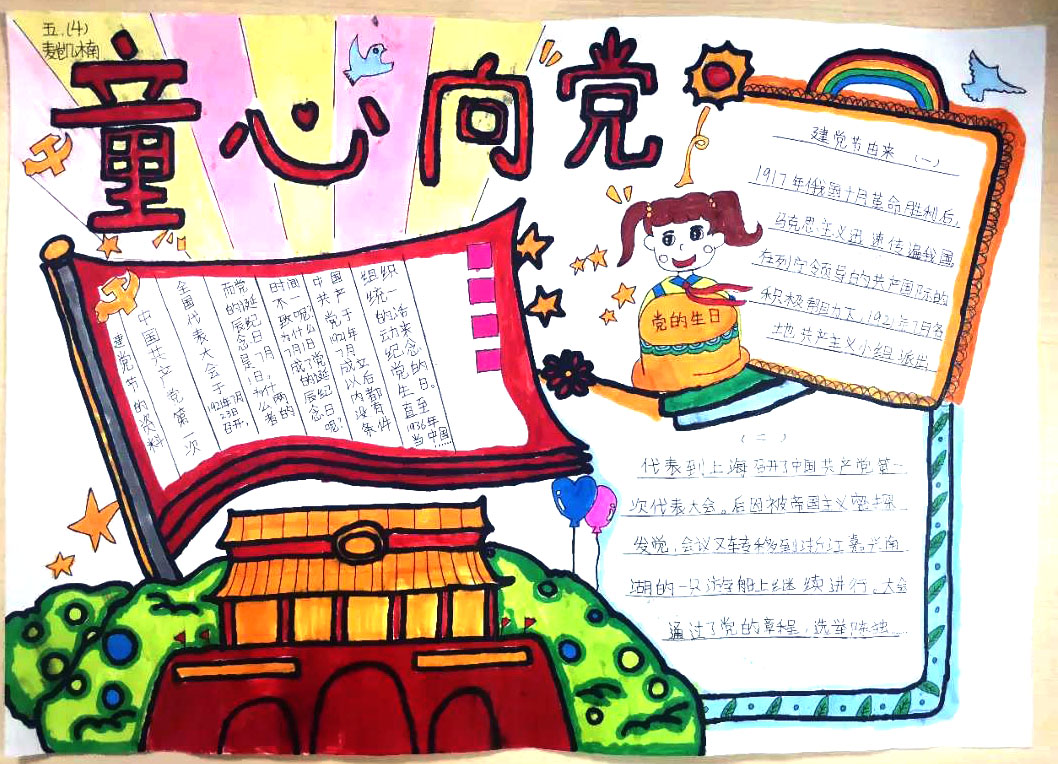 五.(4)
童心向党
建党节的资料
中国共产党第一次
全国代表大会于
1921年7月
23日
召开,
而党
的诞
辰纪
念日
是7月
1日,
为什
么两
者的
时间
不一
致呢?
为什么
7月1日
成了党
的诞
辰纪
念日
呢?
中国
共产
党于
1921年
7月
成立
以后
内都
没有
条件
组织
统一
的活
动来
纪念
党的
生日。
直至
1936年
当中国
党的生日
建党节由来 (一)
1917年俄国十月革命胜利后,
马克思主义迅速传遍我国
在列宁领导的共产国际的
积极帮助力大,1921年7月各
地共产主义小组派出
(二)
代表到上海召开了中国共产党第一
次代表大会。后因被帝国主义密探
发觉,会议又转移到浙江嘉兴南
湖的一只游船上继续进行。大会
通过了党的章程,选举陈独